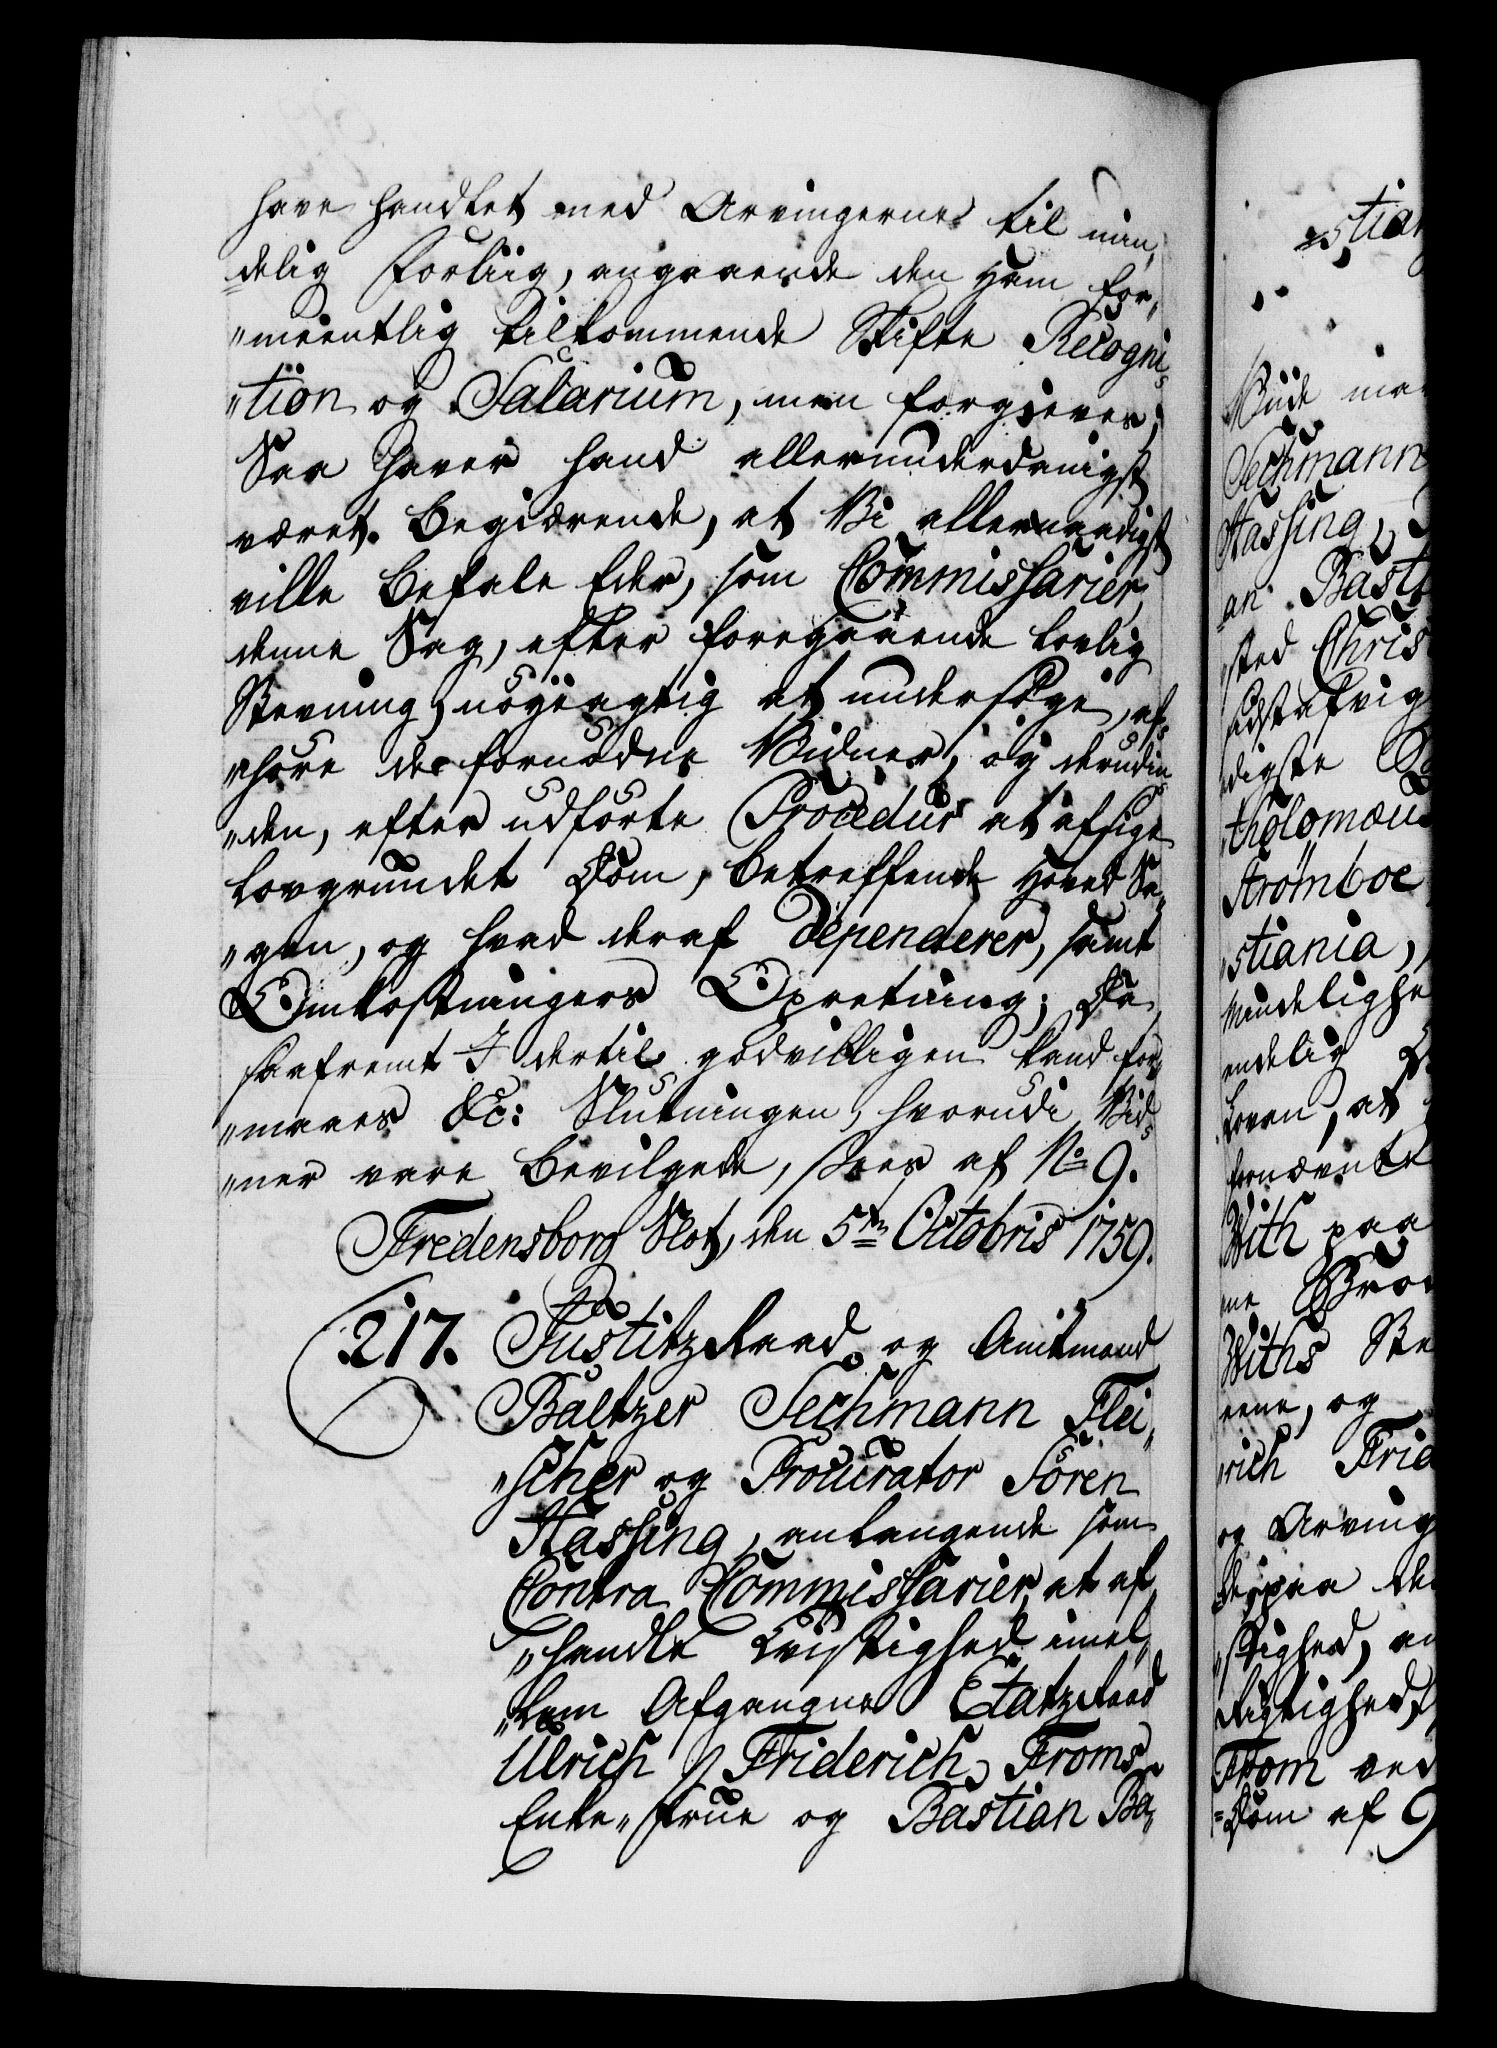 have handlet med Arvingerne til min„
„delig Forliig, angaaende den ham for„
„meentlig tilkommende Skifte Recogni„
„tion og Salarium, men forgieves;
Saa haver hand allerunderdanigst
været begiærende, at Vi allernaadigst
ville befale Eder, som Commissarier,
denne Sag, efter foregaaende lovlig
Stevning, nöyeagtig at undersöge, af„
„höre de fornödne Vidner, og derudin„
„den, efter udförte Procedur at afsige
lovgrundet Dom, betreffende Hoved Sa„
„gen, og hvad deraf dependerer, samt
Omkostningers Opretning; Da
saafremt I dertil godvilligen kand for„
„maaes &c: Slutningen, hvorudi Vid„
„ner vare bevilgede, sees af No 9.
Fredensborg Slot, den 5te Octobris 1759.
217. Justitz Raad og Amtmand
Baltzer Sechmann Flei„
„scher og Procurator Sören
Hassing, anlangende som
Contra Commissarier at af„
„handle Tvistighed imel„
„lem Afgangne Etatz Raad
Ulrich Friderich Froms
Enke-Frue og Bastian Ba„
stian
Sechmann
Hassing,
an Bast
sted Chris
digste
tholomæu
Strömboe
stiania,
Mindelighe
endelig
Loven, at
fornævnte
With paa
ne
Withs Ste
eene, og
rich Frid
og Arving
stighed, an
Rigtighed,
From ved
Dom af 9